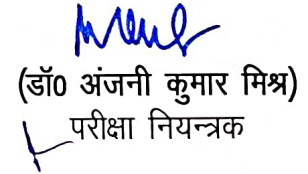 (डॉ0 अंजनी कुमार मिश्र)
परीक्षा नियन्त्रक